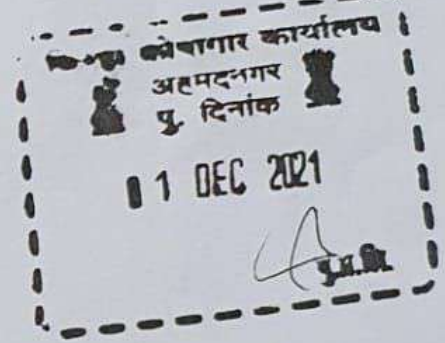 कोषागार कार्यालय
अहमदनगर
पु. दिनांक
01 DEC 2021